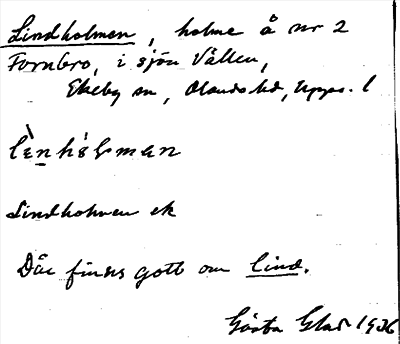 Lindholmen, holme å nr 2
Fornbro, i sjön Vällen,
Ekeby sn, Olands hd, Upps. l
Lindholmen ek
Där finns gott om lind.
Gösta 1936